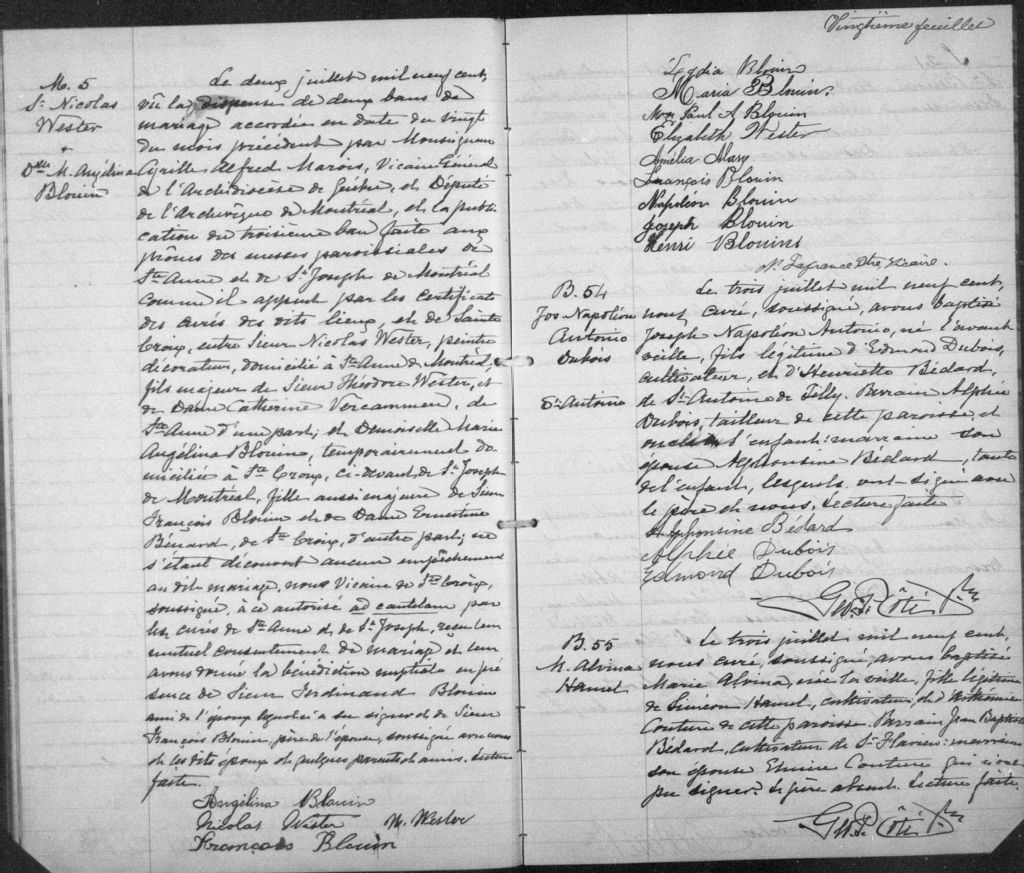 M. 5
St Nicolas
Wester
+
Dlle M. Angélina
Blouin
Le deux juillet mil neuf cent,
vû la dispense de deux bans de
mariage accordée en date du vingt
du mois précédent par Monseigneur
Cyrille Alfred Marois, Vicaire Général
de l'Archidiocèse de Québec, et Député
de l'Archevêque de Montréal, et la publi
cation du troisième ban faite aux
prônes des messes paroissiales de
Ste Anne et de St Joseph de Montréal
comme il appert par les certificats
des curés des dits lieux, et de Sainte
Croix, entre Sieur Nicolas Wester, peintre
décorateur, domicilié à Ste Anne de Montréal,
fils majeur de Sieur Théodore Wester, et
de Dame Catherine Vercammen, de
Ste Anne d'une part; et Demoiselle Marie
Angélina Blouin, temporairement do
miciliée à Ste Croix, ci-devant de St Joseph
de Montréal, fille aussi majeure de Sieur
François Blouin et de Dame Ernestine
Bénard, de Ste Croix, d'autre part; ne
s'étant découvert aucun empêchement
au dit mariage, nous Vicaire de Ste Croix,
soussigné, à ce autorisé ad cautelam par
les curés de Ste Anne et de St Joseph, reçu leur
mutuel consentement de mariage et leur
avons donné la bénédiction nuptiale en pré
sence de Sieur Ferdinand Blouin
ami de l'époux a su signer et de Sieur
François Blouin, père de l'épouse, soussigné avec nous
et les dits époux et quelques parents et amis. Lecture
faite.
Angélina Blouin
Nicolas Wester M. Wester
François Blouin
Vingtième feuillet
Lydia Blouin
Maria Blouin.
Paul A Blouin
Elizabeth Wester
Amélia
François Blouin
Napoléon Blouin
Joseph Blouin
Henri Blouin
N. Lafrance Ptre Vicaire.
B. 54
Jos. Napoléon
Antonio
Dubois
St Antoine
Le trois juillet mil neuf cent,
nous, curé, soussigné, avons baptisé
Joseph Napoléon Antonio, né l'avant
veille, fils légitime d'Edmond Dubois,
cultivateur, et d'Henriette Bédard,
de St Antoine de Tilly. Parrain Alphée
Dubois, tailleur de cette paroisse, et
oncle de l'enfant: marraine son
épouse Alphonsine Bédard, tante
de l'enfant, lesquels ont signé avec
le père et nous. Lecture faite
Alphonsine Bédard
Alphée Dubois
Edmond Dubois
Geo. P. Côté Ptre
B. 55
M. Alvina
Hamel
Le trois juillet mil neuf cent,
nous curé, soussigné, avons baptisé
Marie Alvina, née la veille, fille légitime
de Siméon Hamel, cultivateur, et d'Arthémise
Couture de cette paroisse. Parrain Jean Baptiste
Bédard, cultivateur de St Flavien: marraine
son épouse Couture qui n'ont
pu signer. Le père absent. Lecture faite.
Geo. P. Côté Ptre